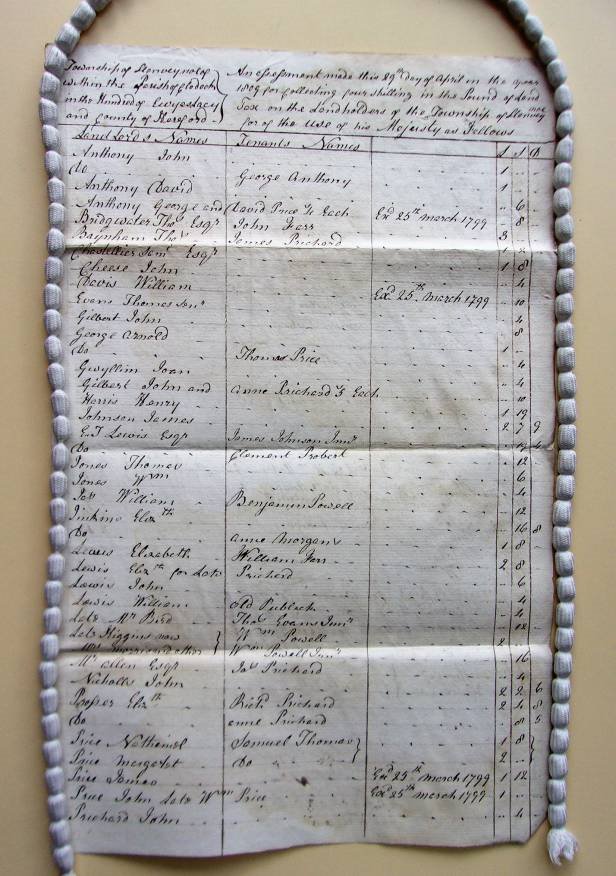 Township of Llanveynol
within the Parish of Clodock
in the Hundred of Ewyaslacy
and County of Hereford
An assessment made this 29th day of April in the year
1809 for collecting four shilling in the Pound of Land
Tax on the Landholders of the Township of
for of the use of his Majesty as Follows
Land Lords Names Tenants Names £ S D
Anthony John
Do George Anthony 1 ..
Anthony David 1 ..
Anthony George and David Price 4 Each .. 6
Bridgwater Thos Esqr John Farr Exd 25th March 1799 .. 8
Baynham Thos James Prichard 3
Esqr 1 2
Cheese John 1 8
Davis William .. 4
Evans Thomas Senr Exd 25th March 1799 .. 10
Gilbert John .. 4
George Arnold .. 8
Do Thomas Price 1 ..
Gwyllim Joan .. 4
Gilbert John and Anne Prichard 5 Each .. 4
Harris Henry .. 10
Johnson James 1 19
Lewis Esqr James Johnson Junr 2 7 9
Do Clement Probert
Jones Thomas .. 12
Jones Wm .. 6
William Benjamin Powell .. 4
Jinkins Elizth .. 12
Do Anne Morgan .. 16 8
Lewis Elizabeth William Farr 1 8
Lewis Elizth for Late Prichard 2 8
Lewis John .. 6
Lewis William Old Publack .. 4
Late Mr Bird Thos Evans Junr .. 4
Late Higgins now Wm Powell .. 12
Wm Powell Junr 2
Mr Allen Esqr Jas Prichard .. 16
Nicholls John .. 4
Prosser Elizth Richd Prichard 2 2 6
Do Anne Prichard 2 4 8
.. 8 5
Price Nathaniel Samuel Thomas 1 8
Price Margaret Do 2 ..
Price James Exd 25th March 1799 1 12
Price John Late Wm Price Exd 25th March 1799 1 ..
Prichard John .. 4